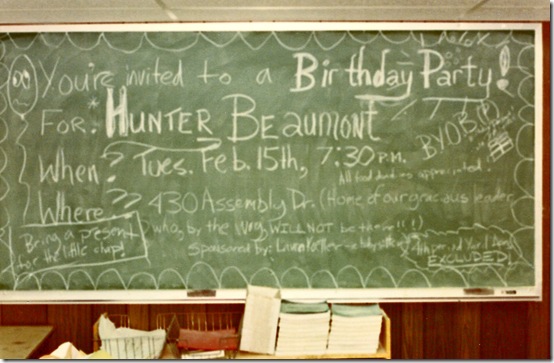 You're invited to a Birthday Party!
For: *HUNTER BEAUMONT
BYOB(P)
When? Tues. Feb. 15th, 7:30 P.M.
All food and
appreciated!
Where?? 430 Assembly Dr. (Home of our gracious leader,
who, by the way, WILL NOT be there!!!)
Bring a present
for the little chap!
Sponsored by:
4th period
EXCLUDED!